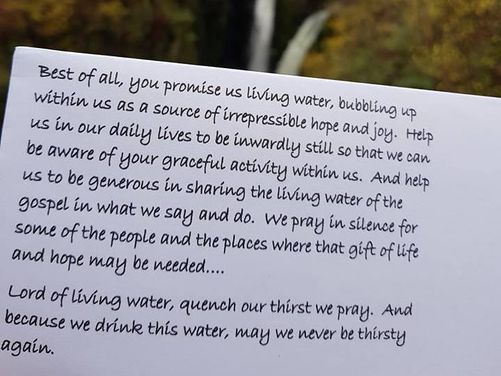 Best of all, you promise us living water, bubbling up
within us as a source of irrepressible hope and joy.  Help
us in our daily lives to be inwardly still so that we can
be aware of your graceful activity within us.  And help
us to be generous in sharing the living water of the
gospel in what we say and do.  We pray in silence for
some of the people and the places where that gift of life
and hope may be needed....
Lord of living water, quench our thirst we pray.  And
because we drink this water, may we never be thirsty
again.